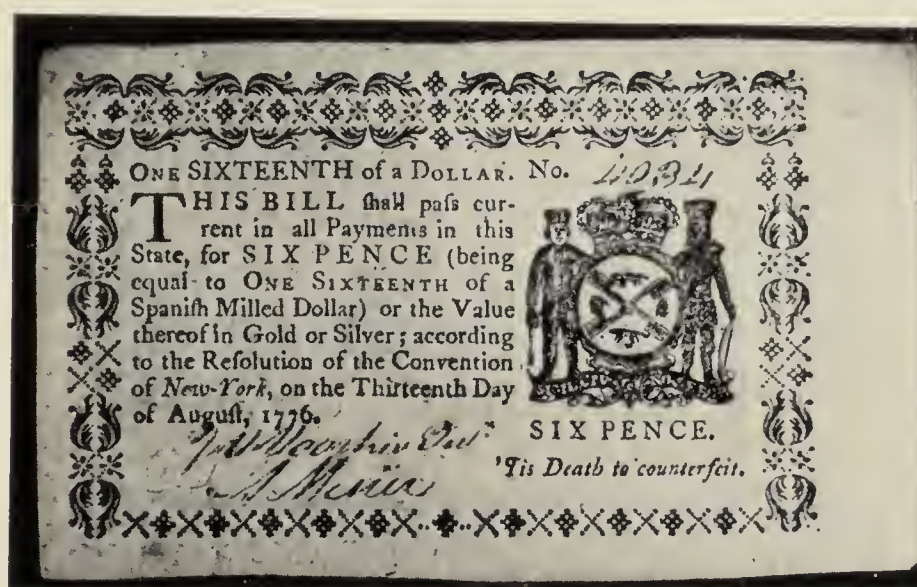 ONE SIXTEENTH of a DOLLAR. No. 4034
THIS BILL ſhall paſs cur-
rent in all Payments in this
State, for SIX PENCE (being
equal to ONE SIXTEENTH of a
Spaniſh Milled Dollar) or the Value
thereof in Gold or Silver; according
to the Reſolution of the Convention
of New-York, on the Thirteenth Day
of Auguſt, 1776.
SIX PENCE.
'Tis Death to counterfeit.